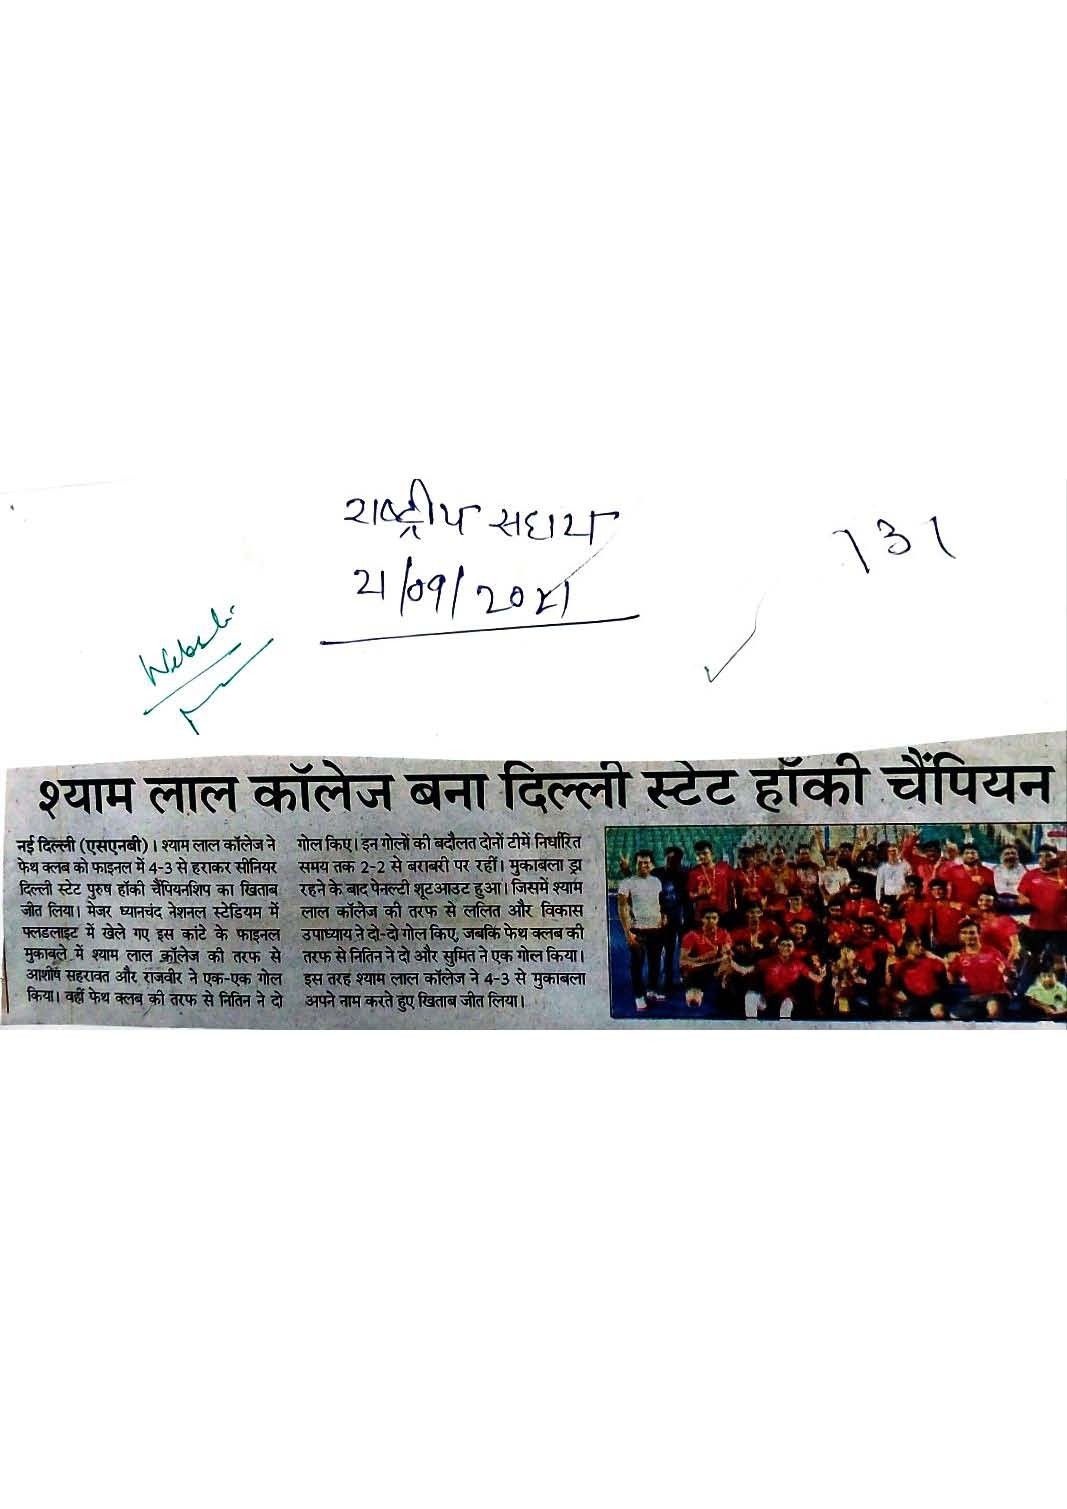 राष्ट्रीय सहारा
21/09/2021
131
श्याम लाल कॉलेज बना दिल्ली स्टेट हॉकी चैंपियन
नई दिल्ली (एसएनबी)। श्याम लाल कॉलेज ने
फेथ क्लब को फाइनल में 4-3 से हराकर सीनियर
दिल्ली स्टेट पुरुष हॉकी चैंपियनशिप का खिताब
जीत लिया। मेजर ध्यानचंद नेशनल स्टेडियम में
फ्लडलाइट में खेले गए इस कांटे के फाइनल
मुकाबले में श्याम लाल कॉलेज की तरफ से
आशीष सहरावत और राजवीर ने एक-एक गोल
किया। वहीं फेथ क्लब की तरफ से नितिन ने दो
गोल किए। इन गोलों की बदौलत दोनों टीमें निर्धारित
समय तक 2-2 से बराबरी पर रहीं। मुकाबला ड्रा
रहने के बाद पेनल्टी शूटआउट हुआ। जिसमें श्याम
लाल कॉलेज की तरफ से ललित और विकास
उपाध्याय ने दो-दो गोल किए, जबकि फेथ क्लब की
तरफ से नितिन ने दो और सुमित ने एक गोल किया।
इस तरह श्याम लाल कॉलेज ने 4-3 से मुकाबला
अपने नाम करते हुए खिताब जीत लिया।